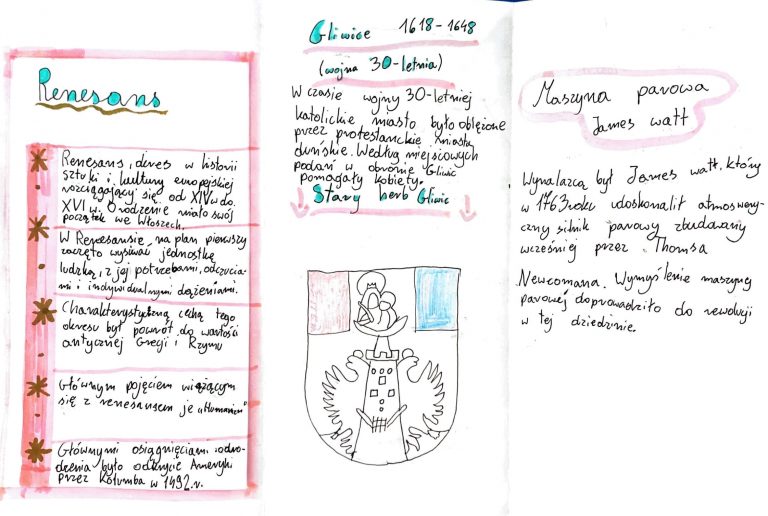 Renesans
Renesans, okres w historii
sztuki i kultury europejskiej
rozciągający się od XIV w do
XVI w. Orodzenie miało swój
początek we Włoszech.
W Renesansie, na plan pierwszy
zaczęto wysuwać jednostkę
ludzką, z jej potrzebami, odczucia-
mi i indywidualnymi dążeniami.
Charakterystyczną cechą tego
okresu był powrót do wartości
antycznej Grecji i Rzymu
Głównym pojęciem wiążącym
się z renesansem je "Humanizm"
Głównymi osiągnięciami odro-
dzenia było odkrycie Ameryki
przez Kolumba w 1492.r.
Gliwice 1618-1648
(wojna 30-letnia)
W czasie wojny 30-letniej
katolickie miasto było oblężone
przez protestanckie miasta
duńskie. Według miejscowych
podań w obronie Gliwic
pomagały kobiety.
Stary herb Gliwic
Maszyna parowa
James watt
Wynalazcą był James watt, który
w 1763roku udoskonalił atmosfery-
czny silnik parowy zbudowany
wcześniej przez Thomsa
Newcomana. Wymyślenie maszyny
parowej doprowadziło do rewolucji
w tej dziedzinie.